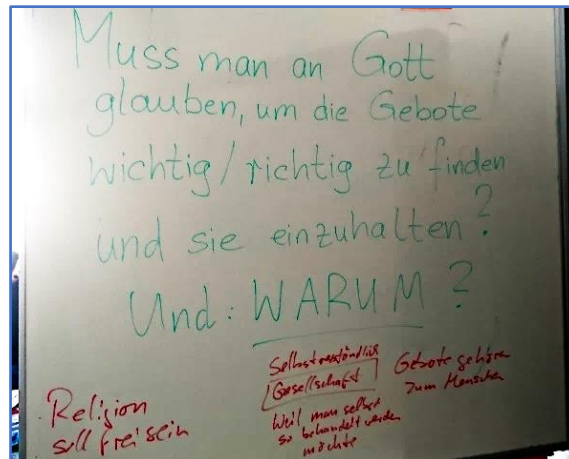 Muss man an Gott
glauben, um die Gebote
wichtig/richtig zu finden
und sie einzuhalten?
Und: WARUM?
Religion
soll frei sein
Selbstverständlich
Gesellschaft
Weil man selbst
so behandelt werden
möchte
Gebote gehören
zum Menschen